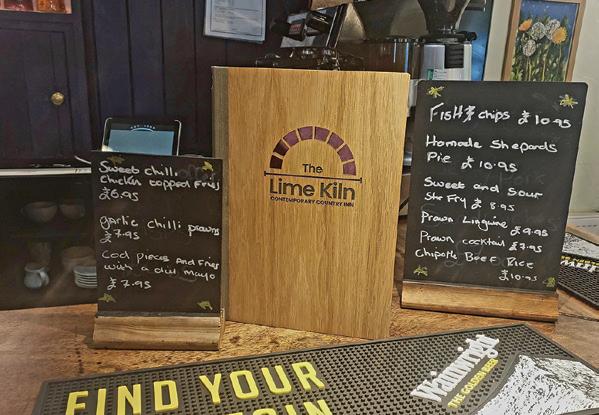 Sweet chilli
Chicken topped Fries
£6.95
garlic chilli prawns
£7.95
Cod pieces and Fries
with a dill mayo
£7.95
The
Lime Kiln
CONTEMPORARY COUNTRY INN
FISH & chips £10.95
Homade Shepards
Pie £10.95
Sweet and Sour
Stir Fry £8.95
Prawn Linguine £9.95
Prawn cocktail £7.95
Chipotle Beef Rice
£10.95
FIND YOUR
Wainwright
THE GOLDEN BEER